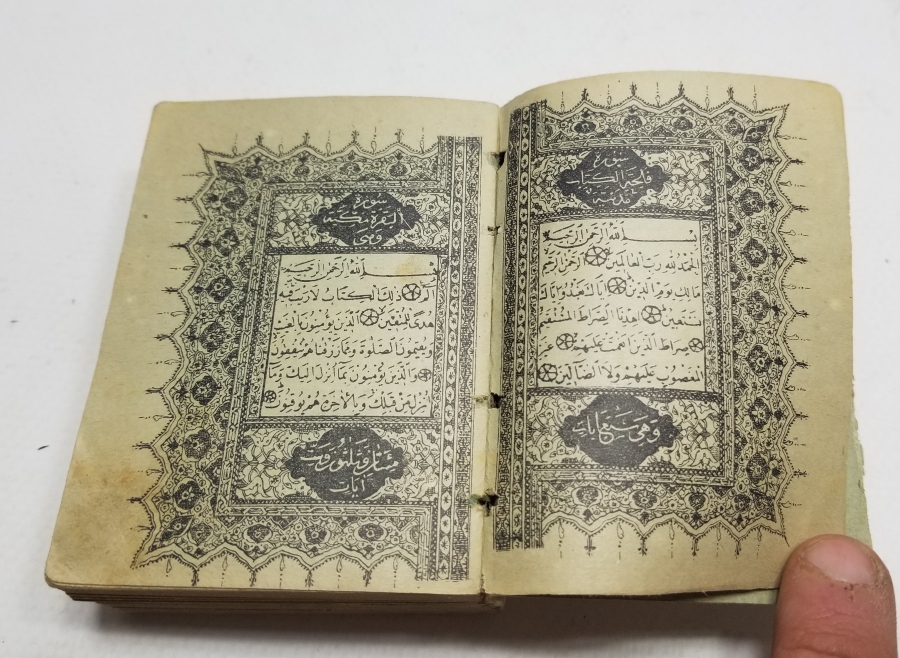 سورة
فاتحة الكتاب
مدنية
بسم الله الرحمن الرحيم
الحمد لله رب العالمين الرحمن الرحيم
مالك يوم الدين اياك نعبد واياك
نستعين اهدنا الصراط المستقيم
صراط الذين انعمت عليهم غير
المغضوب عليهم ولا الضالين
وهي سبع ايات
سورة
البقرة مكية
وهي
بسم الله الرحمن الرحيم
الم ذلك الكتاب لا ريب فيه
هدى للمتقين الذين يؤمنون بالغيب
ويقيمون الصلوة ومما رزقناهم ينفقون
والذين يؤمنون بما انزل اليك وما
انزل من قبلك وبالاخرة هم يوقنون
ايات